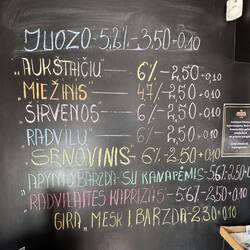 JUOZO - 5,6% - 3,50 + 0,10
„AUKŠTAIČIU" — 6% - 2,50 + 0,10
„MIEŽINIS" — 4,7% - 2,50 + 0,10
„ŠIRVENOS" — 6% - 2,50 + 0,10
„RADVILŲ" — 6% - 2,50 + 0,10
SENOVINIS - 6% - 2,50 + 0,10
„APYNIO BARZDA" SU KANAPĖMIS - 5,6% - 2,50 + 0,10
„RADVILAITĖS KAPRIZAS" - 5,6% - 2,50 + 0,10
GIRA „MESK I BARZDĄ" - 2,30 + 0,10